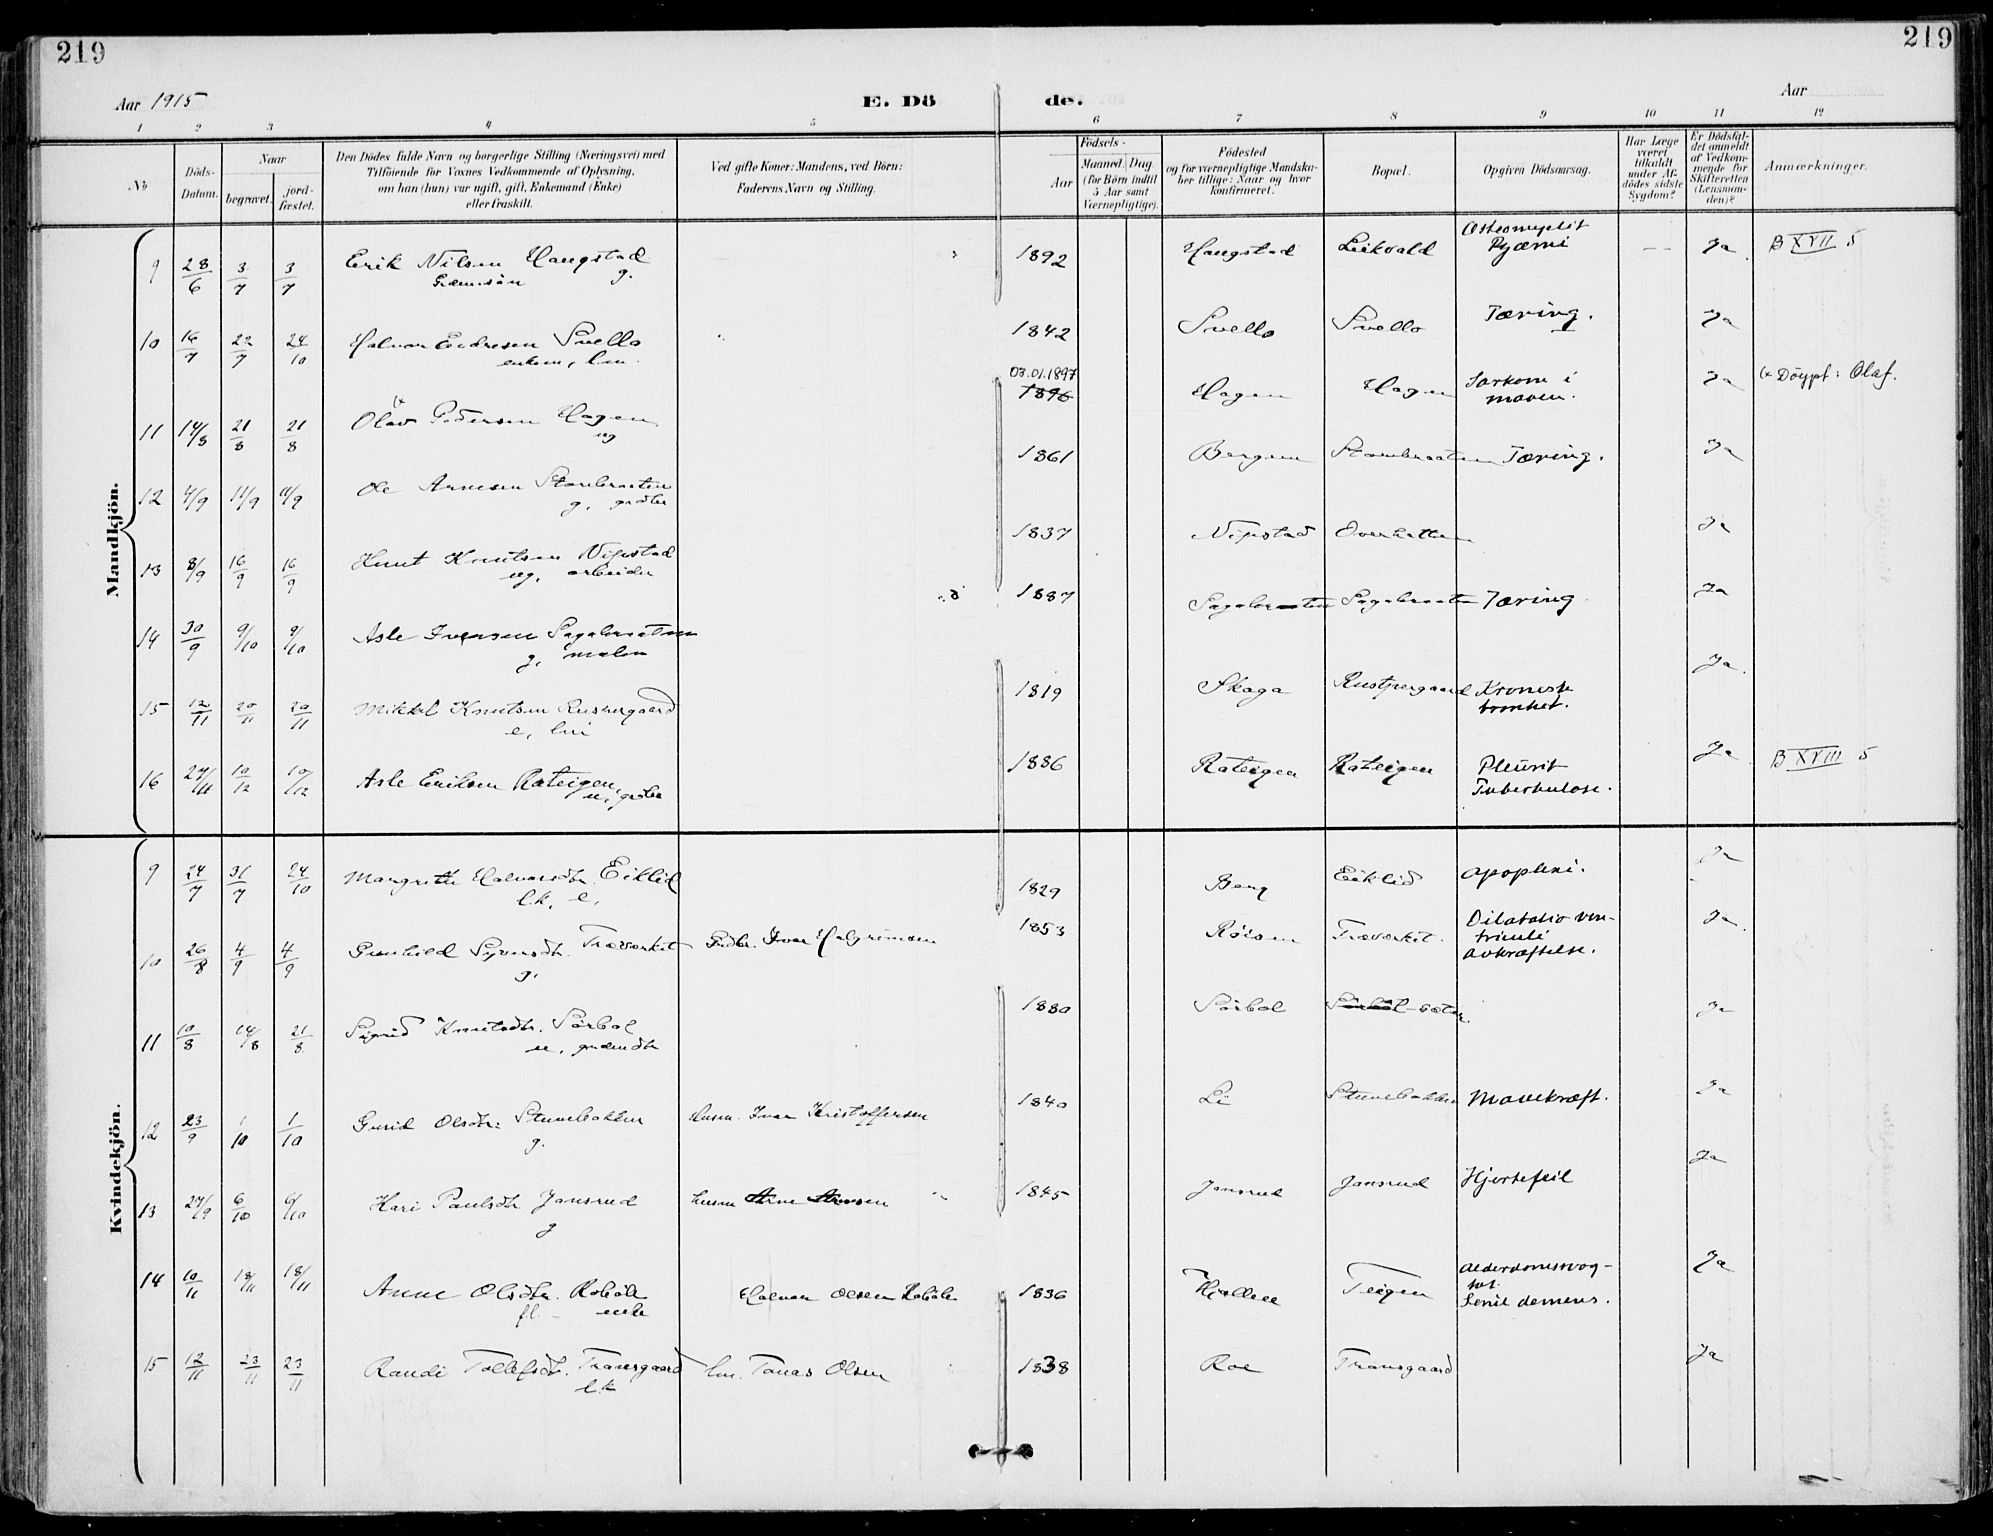 219
219
Aar 1915
E. Dö de.
Aar
1 2 3 4 5 6 7 8 9 10 11 12
No
Döds-Datum.
Naar
begravet.
jord-fæstet.
Den Dödes fulde Navn og borgerlige Stilling (Næringsvei) med
Tilföiende for Voxnes Vedkommende af Oplysning,
om han (hun) var ugift, gift, Enkemand (Enke)
eller fraskilt.
Ved gifte Koner: Mandens, ved Börn:
Faderens Navn og Stilling.
Födsels-
Aar
Maaned. Dag
(for Börn indtil
5 Aar samt
Værnepligtige).
Födested
og for værnepligtige Mandska-
ber tillige: Naar og hvor
konfirmeret.
Bopæl.
Opgiven Dödsaarsag.
Har Læge
været
tilkaldt
under Af-
dödes sidste
Sygdom?
Er Dödsfal-
det anmeldt
af Vedkom-
mende for
Skifteretten
(Lensman-
den)?
Anmærkninger.
Mandkjön.
9 28/6 3/7 3/7 Erik Nilsen Haugstad 1892 Haugstad Leikvald Osteomyelit Ja B XVII 5
g. Pyæmi
10 16/7 22/7 24/10 Halvor Endresen Svello 1842 Svello Svello Tæring. Ja
enkem,
11 14/8 21/8 21/8 Olav Pedersen Hagen 03.01.1897 1896 Hagen Hagen Sarkom i Ja (x Döypt: Olaf.
ug maven.
12 4/9 11/9 11/9 Ole Arnesen Storebraaten 1861 Bergum Storebraaten Tæring. Ja
g, grdbr
13 8/9 16/9 16/9 Knut Knutsen Nipstad 1837 Nipstad Ja
ug, arbeider
14 30/9 9/10 9/10 Asle Iversen Sagabraaten 1887 Sagabraaten Sagabraaten Tæring Ja
g, maler
15 12/11 20/11 20/11 Mikkel Knutsen 1819 Skaga Kronisk Ja
e, bronkit.
16 27/11 10/12 10/12 Asle Eriksen Rateigen, 1886 Rateigen Rateigen Pleurit Ja B XVIII 5
Tuberkulose.
Kvindekjön.
9 24/7 31/7 24/10 Margrethe Halvorsdtr. Eiklid 1829 Berg Eiklid Apoplexi. Ja
l.k, e,
10 26/8 4/9 4/9 Gunhild Syversdtr. Træværket Grdbr. Ivar Halgrimsen 1853 Röisen Træværket. Dilatatio ven- Ja
g, triculi
avkræftelse.
11 10/8 14/8 21/8 Sigrid Knutsdtr. Sörböl 1880 Sörböl Ja
12 23/9 1/10 1/10 Gurid Olsdtr. Stuvebakken Husm. Ivar Kristoffersen 1840 Li Stuvebakken Mavekræft. Ja
g.
13 27/9 6/10 6/10 Kari Paulsdtr Jansrud husm Arne Arnesen 1845 Jansrud Jansrud Hjertefeil Ja
g
14 10/11 18/11 18/11 Anne Olsdtr. Halvor Olsen 1836 Teigen Ja
fl. - enke Senil demens.
15 12/11 23/11 23/11 Randi Tollefsdtr. Transgaard hm. Tomas Olsen 1838 Roe Transgaard Ja
l.k